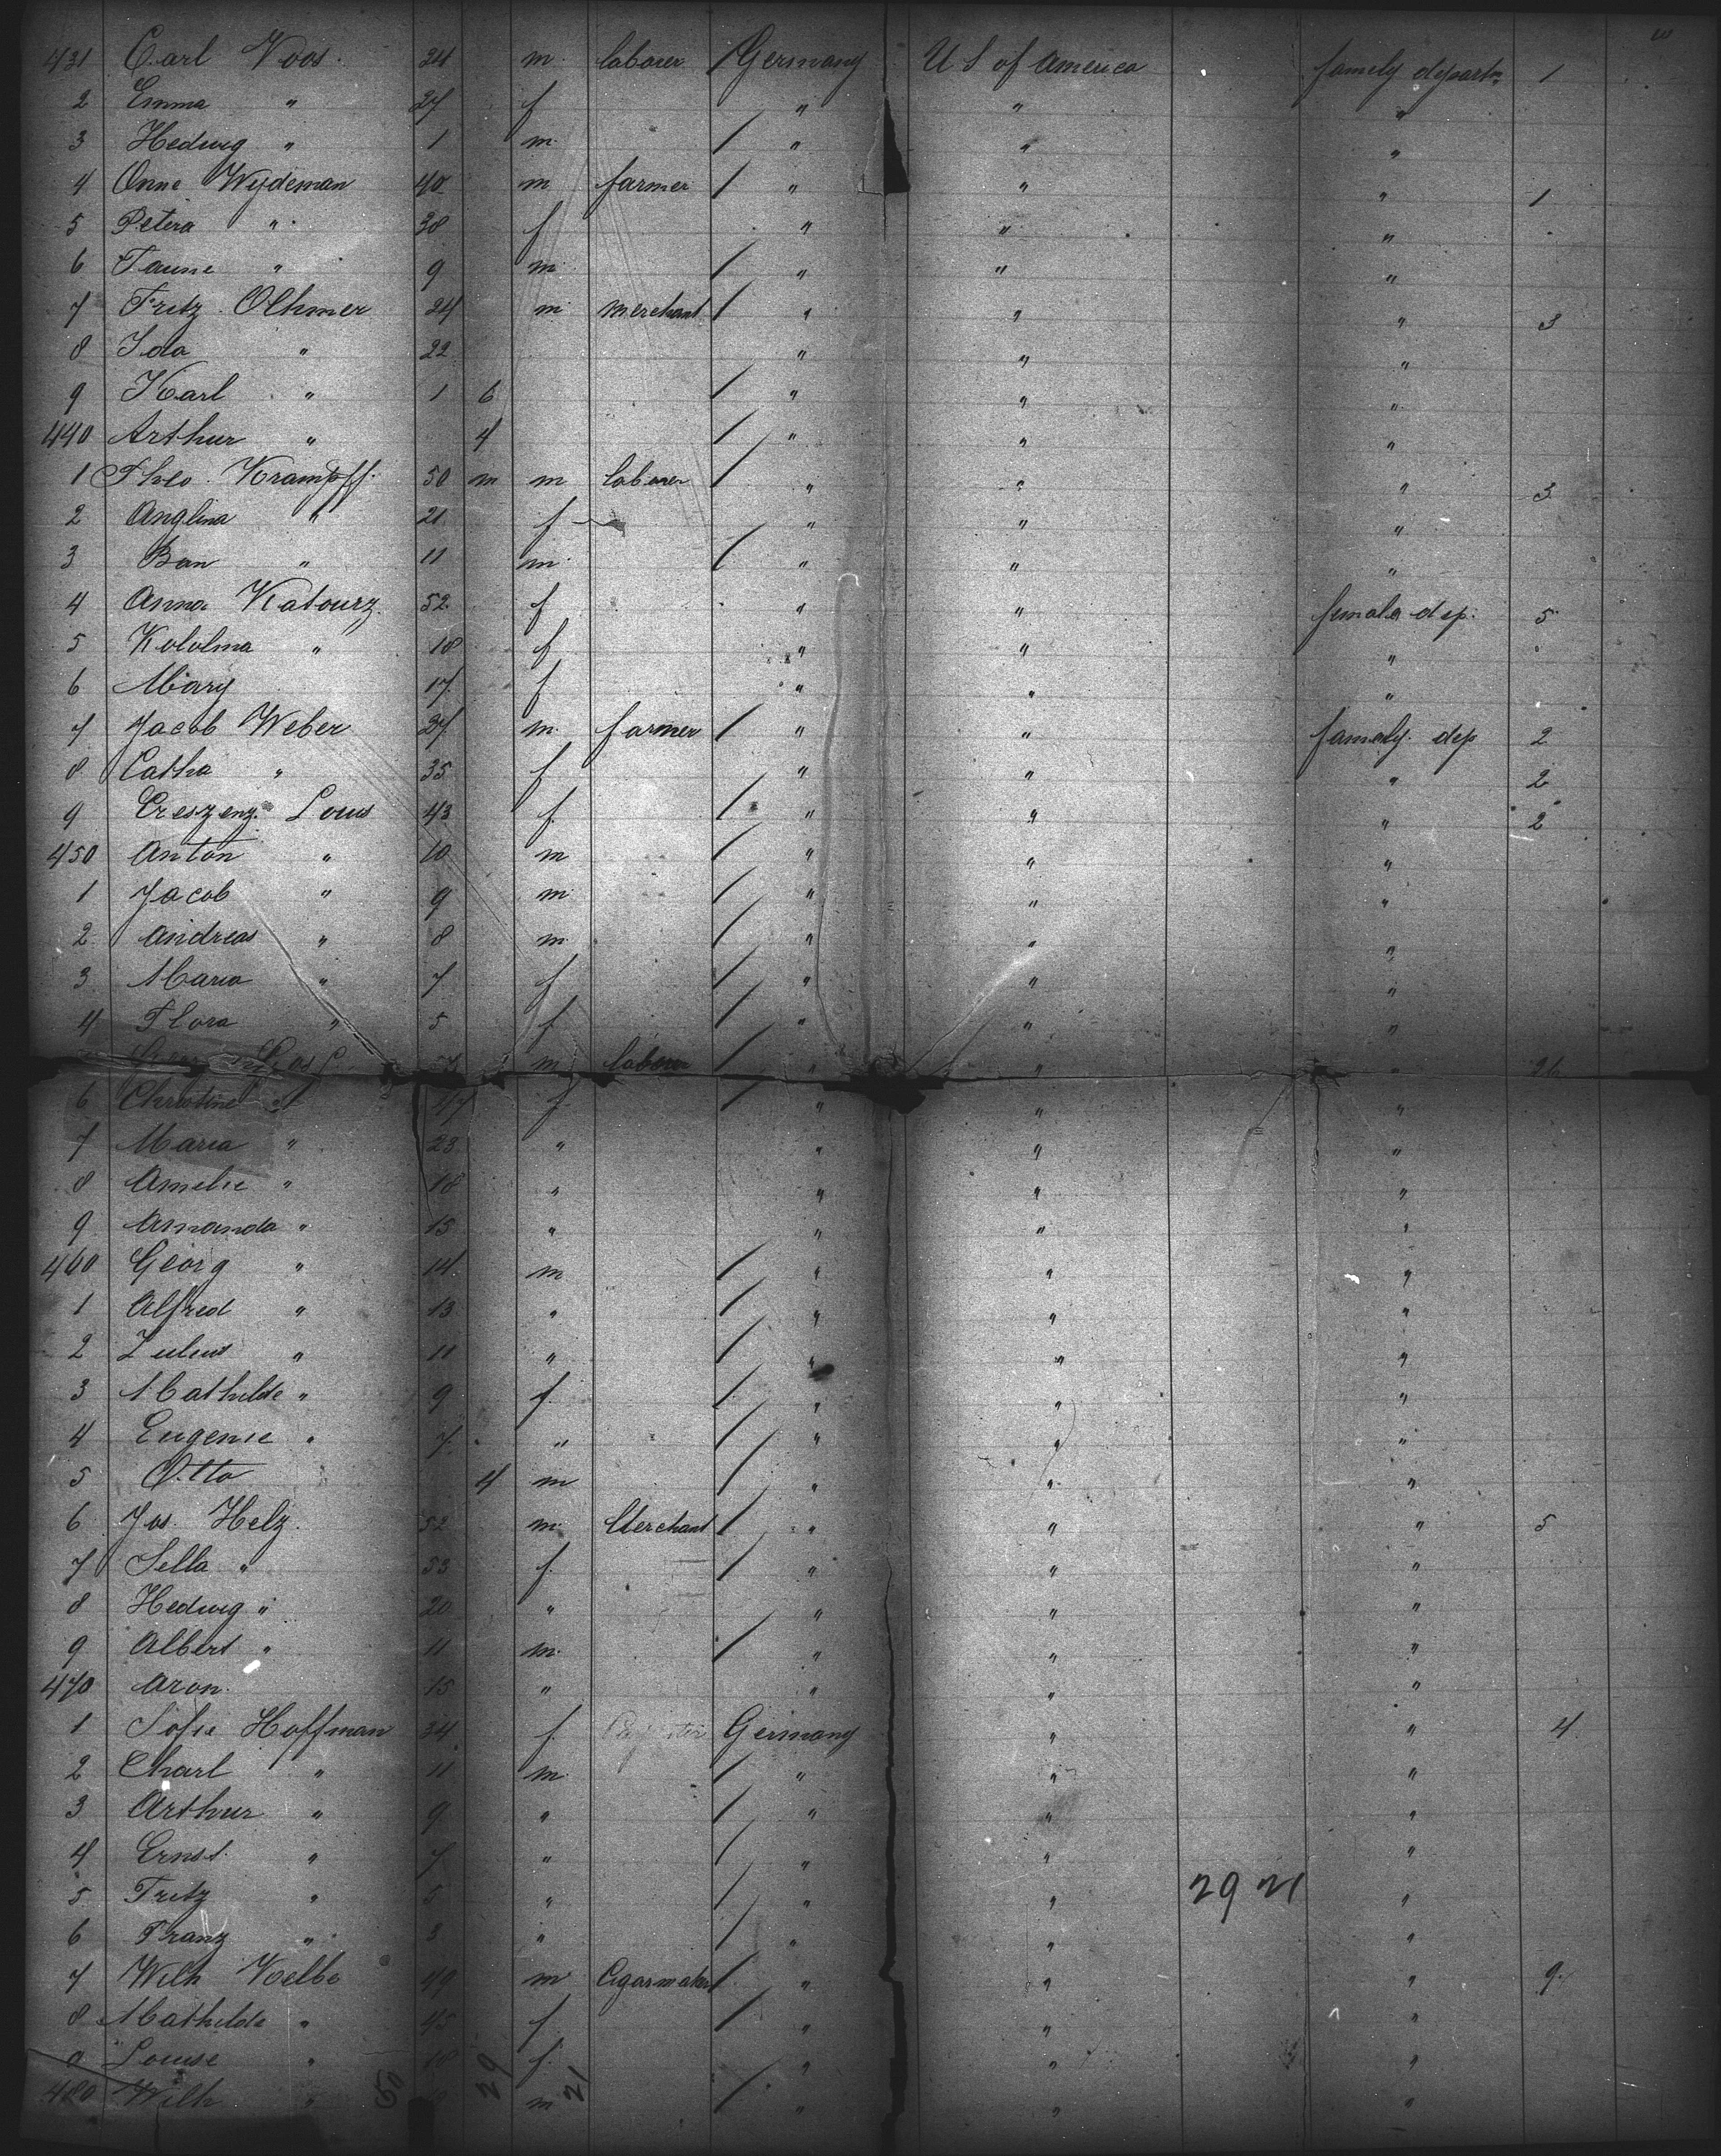 431 Carl Voos. 24 m. laborer Germany U S of America family departm 1
2 Emma " 27 f " " "
3 Hedwig " 1 m. " " "
4 Onne Wydeman 40 m farmer " " " 1
5 Petera " 38 f " " "
6 " 9 m. " " "
7 Fritz Olhmer 24 m merchant " " " 3
8 Ida " 22 " " "
9 Karl " 1 6 " " "
440 Arthur " 4 " " "
1 Theo. Krampff. 50 m m laborer " " " 3
2 Anglina " 21 f " " "
3 Ban " 11 m. " " "
4 Anna Katourz. 52 f " " female dep. 5
5 Kololma " 18 f " " "
6 Mary 17 f " " "
7 Jacob Weber 37 m. farmer " " family. dep 2
8 Catha " 35 f " " " 2
9 Creszenz. Louis 43 f. " " " 2
450 Anton " 10 m " " "
1 Jacob " 9 m. " " "
2 Andreas " 8 m. " " "
3 Maria " 7 f " " "
4 Flora " 5 f. " " "
m laborer " " "
6 Christine " 47 f " " "
7 Maria " 23 " " " "
8 Amelie " 18 " " " "
9 Amanda " 15 " " " "
460 Georg " 14 m " " "
1 Alfred " 13 " " " "
2 Julius " 11 " " " "
3 Mathilde " 9 f " " "
4 Eugenie " 7. " " " "
5 Otto 4 m " " "
6 Jos. Helz. 52 m. Merchant " " " 5
7 Sella " 53 f. " " "
8 Hedwig " 20 " " " "
9 Albert " 11 m. " " "
470 Aron. 15 " " " "
1 Sofie Hoffman 34 f. Germany " " 4.
2 Charl " 11 m. " " "
3 Arthur " 9 " " " "
4 Ernst. " 7 " " " "
5 Fritz " 5 " " " "
29 21
6 Franz " 3 " " " "
7 Wilh Voelbe 49 m Cigarmaker " " " 9.
8 Mathilde " 45 f " " "
9 Louise " 18 f. " " "
480 Wilh " m " " "
50 29 21